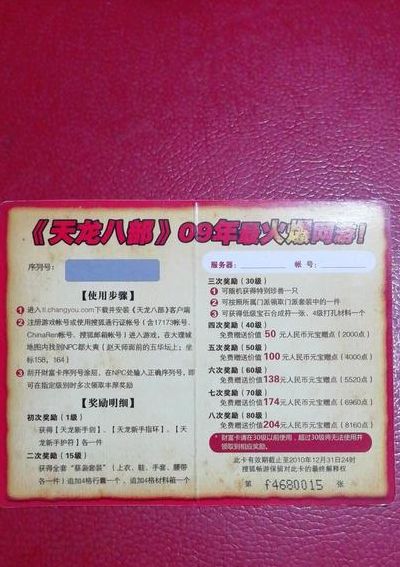 《天龙八部》09年最火爆网游！
序列号：
【使用步骤】
1 进入tl.changyou.com下载并安装《天龙八部》客户端
2 注册游戏帐号或使用搜狐通行证帐号（含17173帐号、
ChinaRen帐号、搜狐邮箱帐号）进入游戏，在大理城
地图内找到NPC郡大黄（赵天师面前的五华坛上；坐
标158，164）
3 刮开财富卡序列号涂层，在NPC处输入正确序列号，即
可在指定级别时多次领取丰厚奖励
【奖励明细】
初次奖励（1级）
获得【天龙新手剑】、【天龙新手指环】、【天
龙新手护符】各一件
二次奖励（15级）
获得全套“慕袅套装”（上衣、鞋、手套、腰带
各一件） 追加4格行囊一个，追加4格材料箱一个
服务器： 帐号：
三次奖励（30级）
1 可随机获得特别珍兽一只
2 可按照所属门派领取门派套装中的一件
3 可获得低级宝石合成符一张、4级打孔材料一个
四次奖励（40级）
免费赠送价值 50 元人民币元宝赠点（2000点）
五次奖励（50级）
免费赠送价值 100 元人民币元宝赠点（4000点）
六次奖励（60级）
免费赠送价值138元人民币元宝赠点（5520点）
七次奖励（70级）
免费赠送价值174元人民币元宝赠点（6960点）
八次奖励（80级）
免费赠送价值204元人民币元宝赠点（8160点）
* 财富卡请在30级以前使用，超过30级将无法使用并
领取到相应奖励。
此卡有效期截止至2010年12月31日24时
搜狐畅游保留对此卡的最终解释权
第 f4680015 张